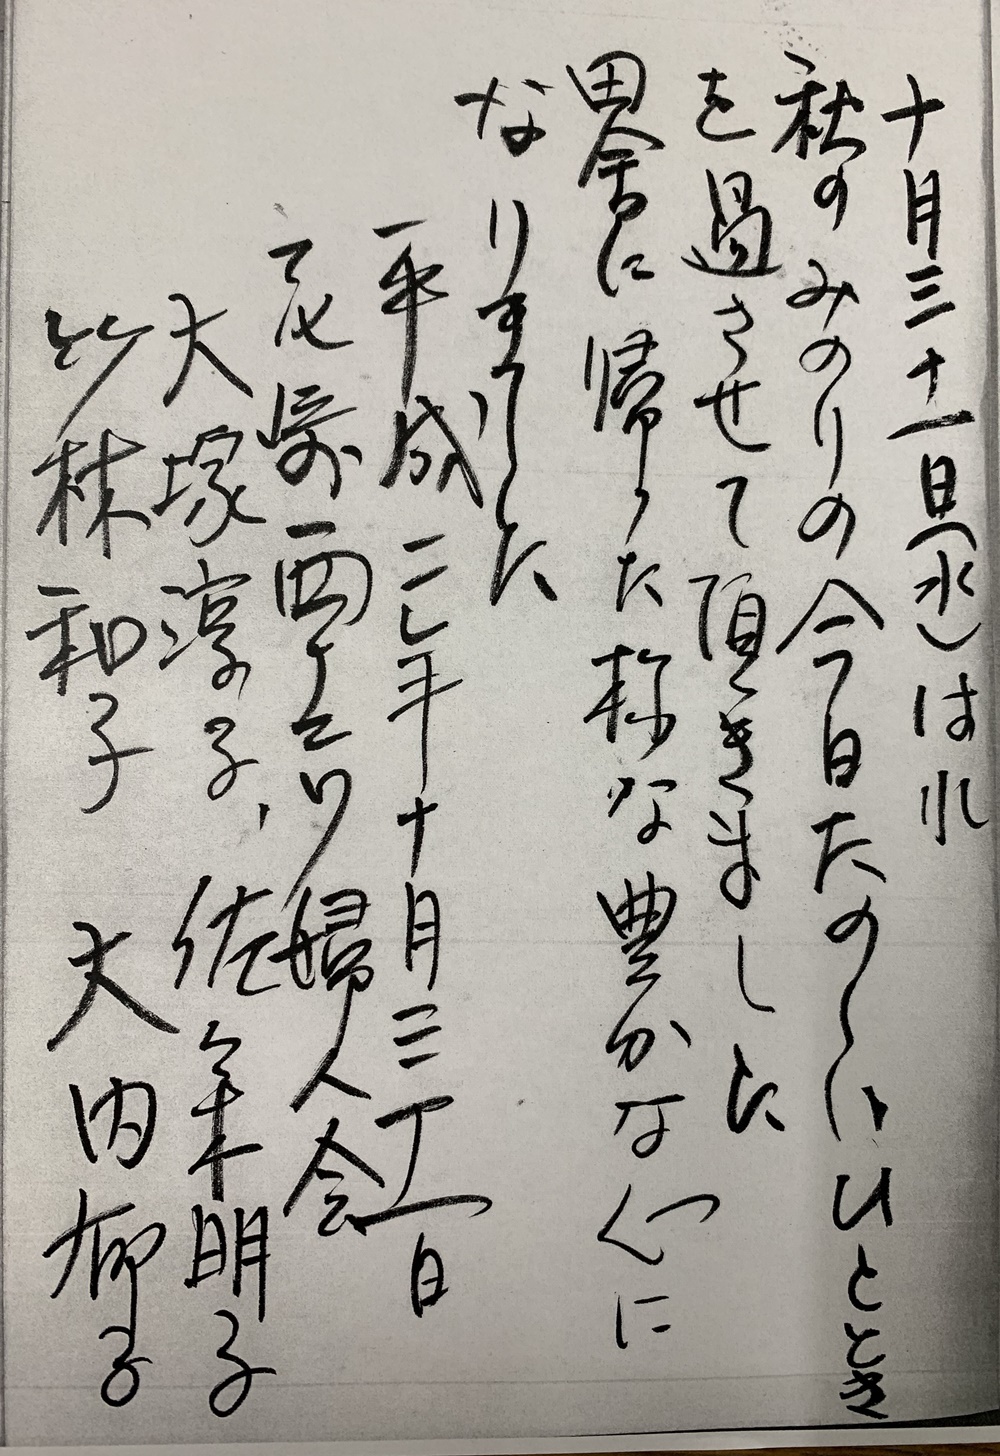 十月三十一日(水)は晴れ
秋のみのりの今日たのしいひととき
を過させて頂きました
田舎に帰った様な豊かな心に
なりました
平成二七年十月三十一日
尼崎西 婦人会
大塚淳子、佐 明子
林和子 大内郁子